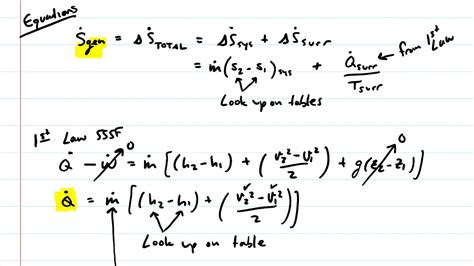 Equations
Ṡgen = ΔṠTOTAL = ΔṠsys + ΔṠsurr
= ṁ(s₂-s₁)sys + Q̇surr/Tsurr ← from 1st Law
Look up on tables
1st Law SSSF
0 0
Q̇ - Ẇ = ṁ[(h₂-h₁) + (V₂²-V₁²/2) + g(z₂-z₁)]
Q̇ = ṁ[(h₂-h₁) + (V₂²-V₁²/2)]
Look up on table